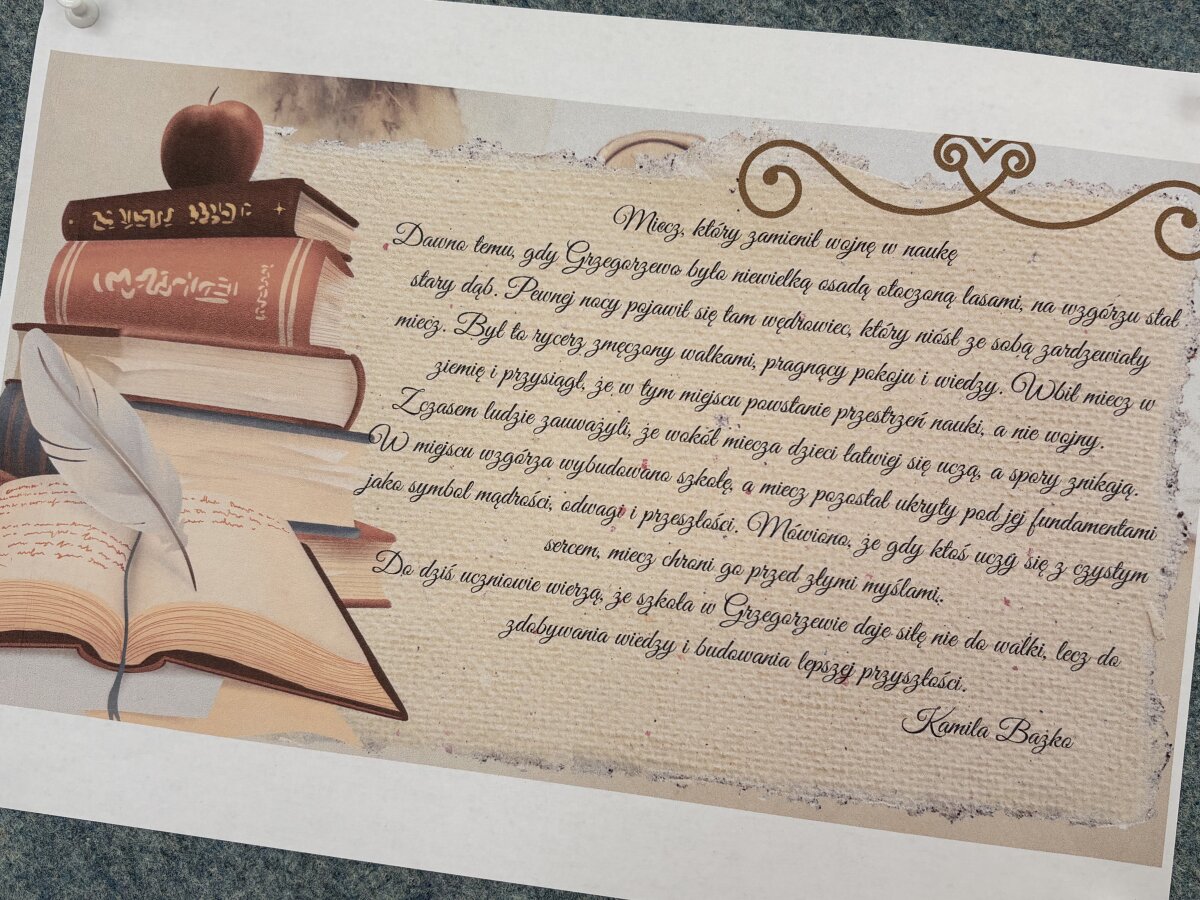 Miecz, który zamienił wojnę w naukę
Dawno temu, gdy Grzegorzewo było niewielką osadą otoczoną lasami, na wzgórzu stał
stary dąb. Pewnej nocy pojawił się tam wędrowiec, który niósł ze sobą zardzewiały
miecz. Był to rycerz zmęczony walkami, pragnący pokoju i wiedzy. Wbił miecz w
ziemię i przysiągł, że w tym miejscu powstanie przestrzeń nauki, a nie wojny.
Zczasem ludzie zauważyli, że wokół miecza dzieci łatwiej się uczą, a spory znikają.
W miejscu wzgórza wybudowano szkołę, a miecz pozostał ukryty pod jej fundamentami
jako symbol mądrości, odwagi i przeszłości. Mówiono, że gdy ktoś uczy się z czystym
sercem, miecz chroni go przed złymi myślami..
Do dziś uczniowie wierzą, że szkoła w Grzegorzewie daje siłę nie do walki, lecz do
zdobywania wiedzy i budowania lepszej przyszłości.
Kamila Bażko